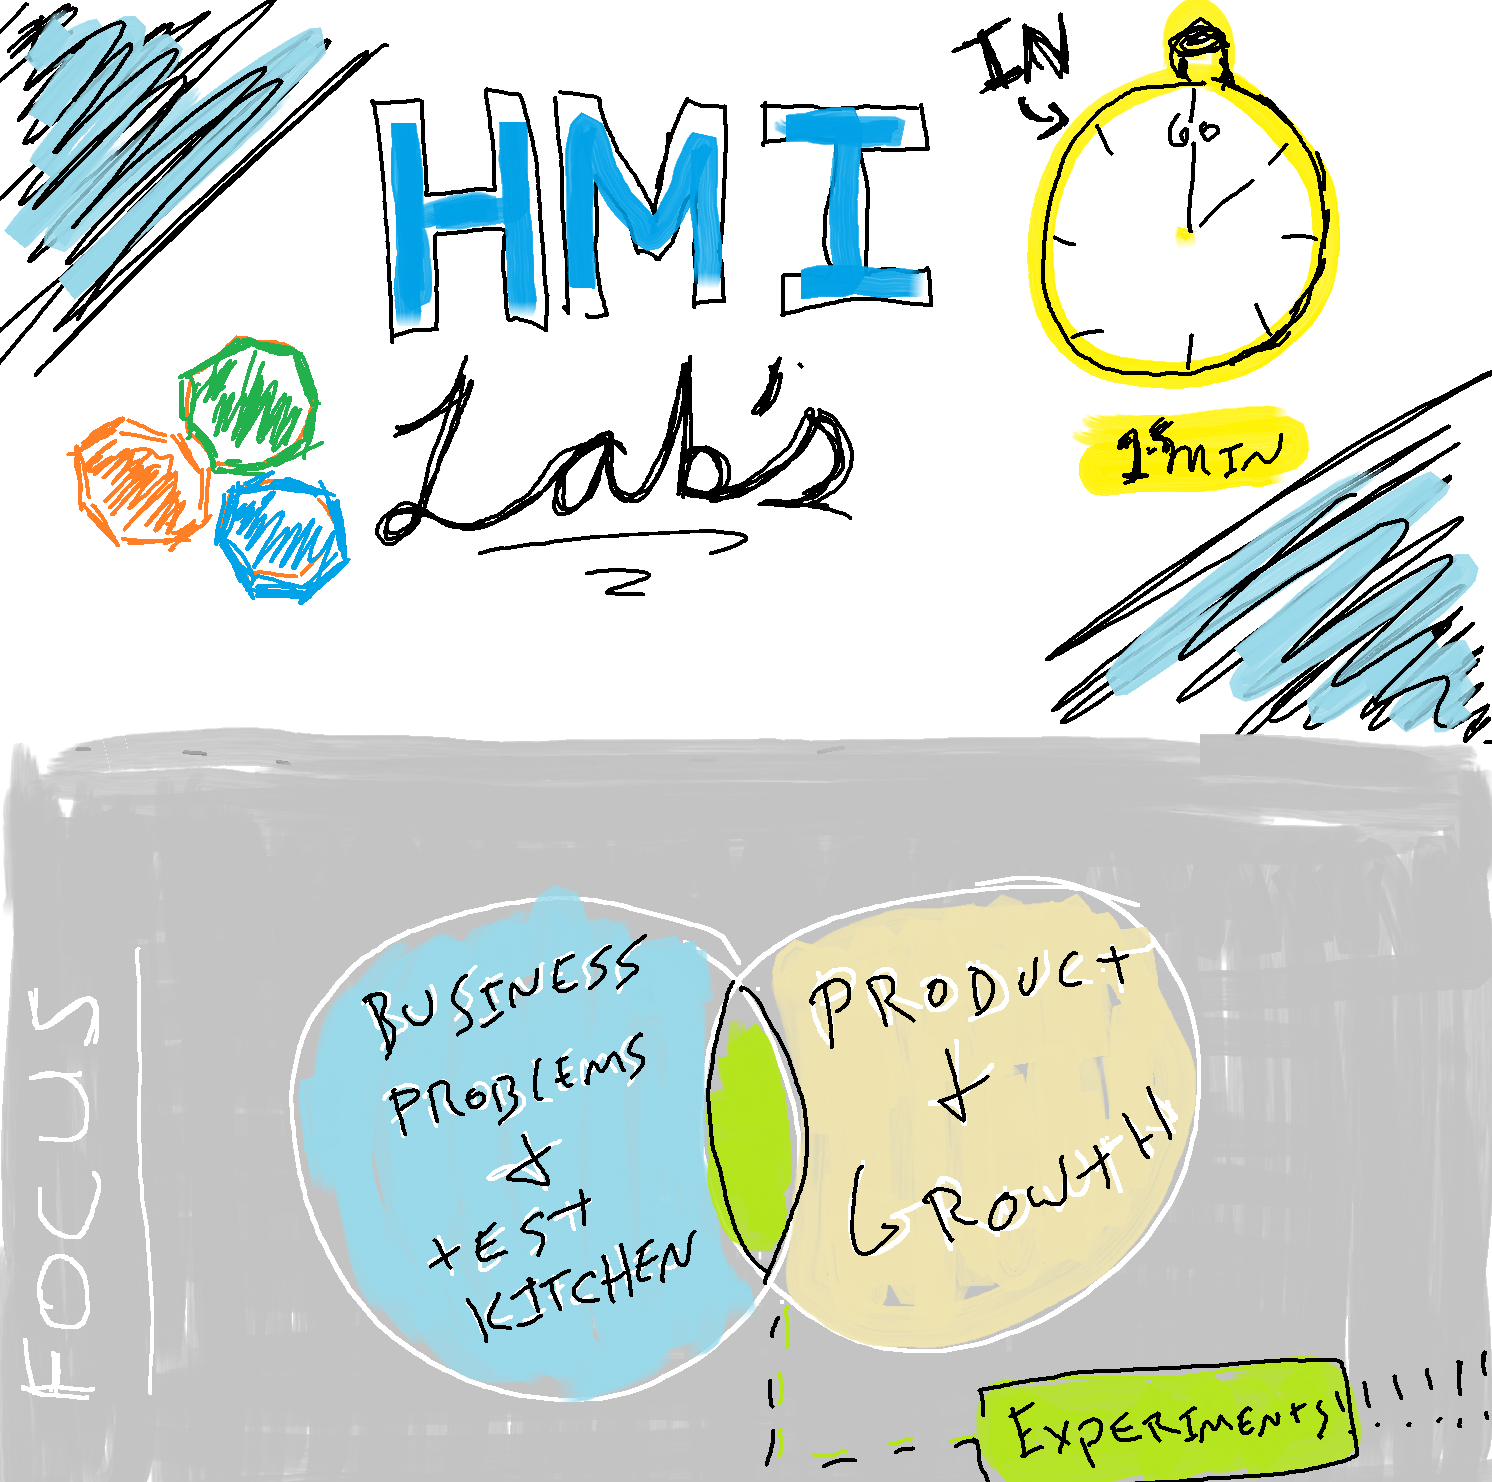 HMI
Lab's
IN
60
1.5 MIN
FOCUS
BUSINESS
PROBLEMS
&
TEST
KITCHEN
PRODUCT
&
GROWTH
EXPERIMENTS!!!!!!